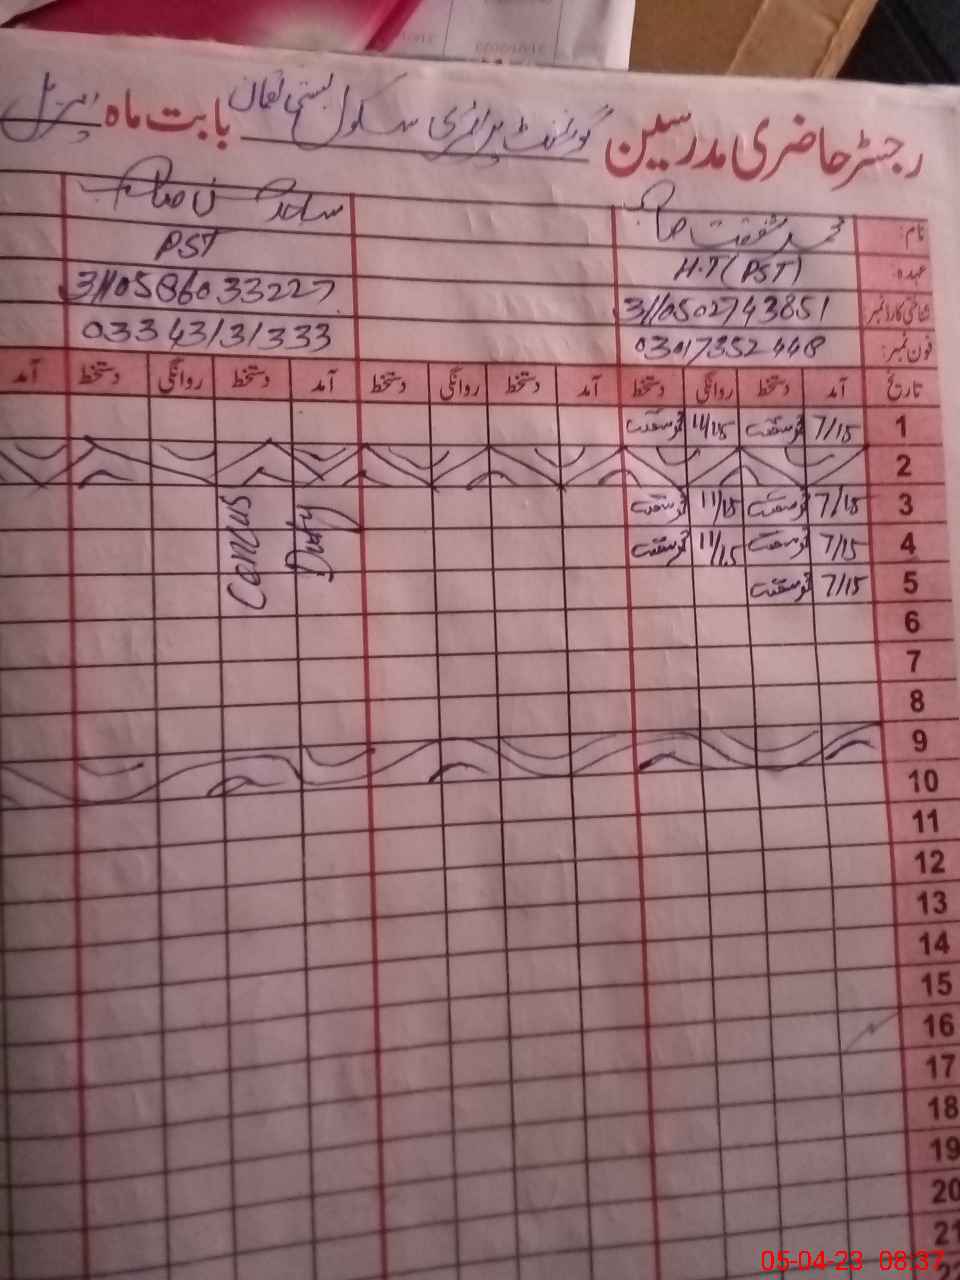 رجسٹر حاضری مدرسین گورنمنٹ پرائمری سکول بستی نعمان بابت ماہ اپریل
نام: محمد شفقت صاحب
عہدہ: H.T (PST) PST
شناختی کارڈ نمبر 3110502743851 3110586033227
فون نمبر: 03017352448 03343131333
تاریخ آمد دستخط روانگی دستخط آمد دستخط روانگی دستخط آمد دستخط روانگی دستخط آمد
1 7/15 11/15
2
3 7/15 11/15
4 7/15 11/15
5 7/15
Cencus Duty
6
7
8
9
10
11
12
13
14
15
16
17
18
19
20
21
05-04-23 08:37